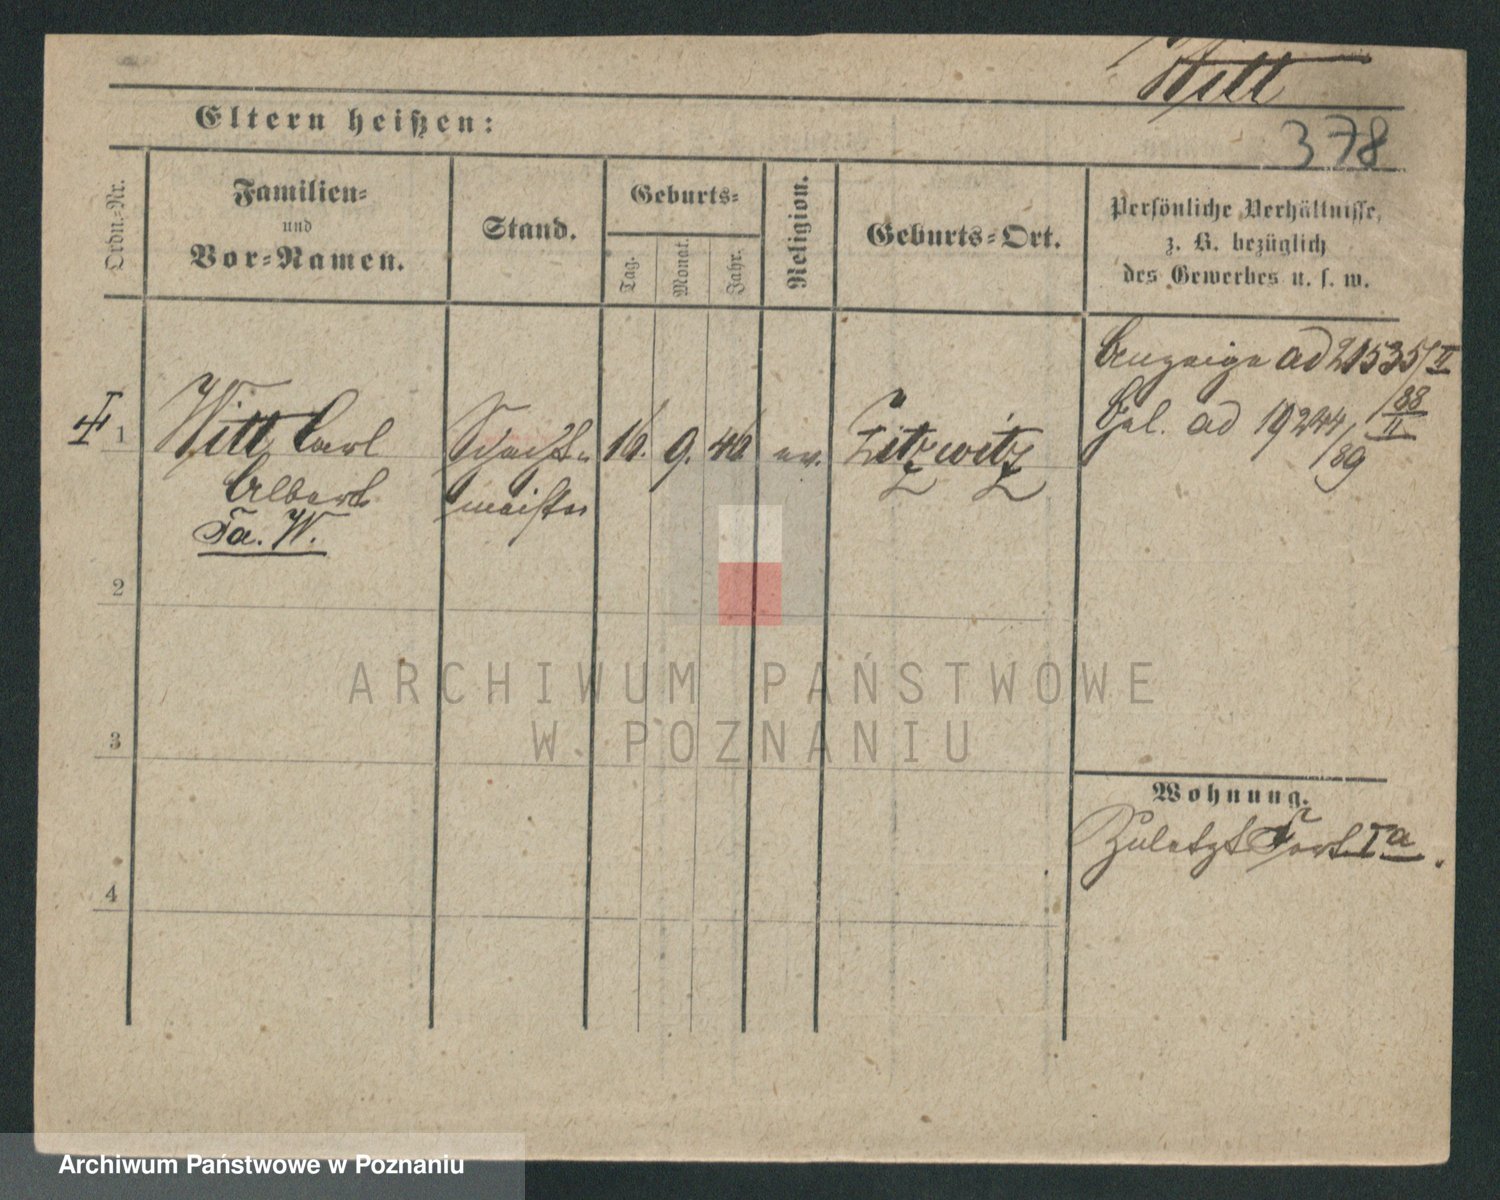 Witt
Eltern heißen:
378
Ordn.-Nr.
Familien-
und
Vor-Namen.
Stand.
Geburts-
Tag.
Monat.
Jahr.
Religion.
Geburts-Ort.
Persönliche Verhältnisse,
z. B. bezüglich
des Gewerbes u. s. w.
Anzeige ad 21535/II
88
1
Witt Carl
Albert
Fa. W.
Schacht-
meister
16.
9.
46
ev.
Zitzwitz
ad 19244/II
89
2
3
4
Wohnung.
Zuletzt Fort Ia.
ARCHIWUM PAŃSTWOWE
W POZNANIU
Archiwum Państwowe w Poznaniu